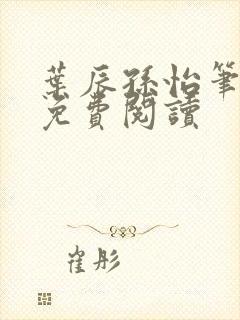 葉辰孫怡筆
免費閱讀
崔彤